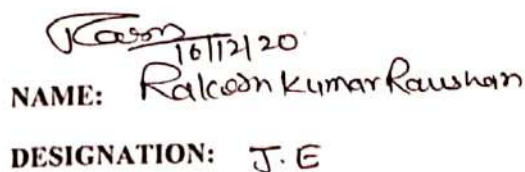 16/12/20
NAME: Kumar Raushan
DESIGNATION: J.E